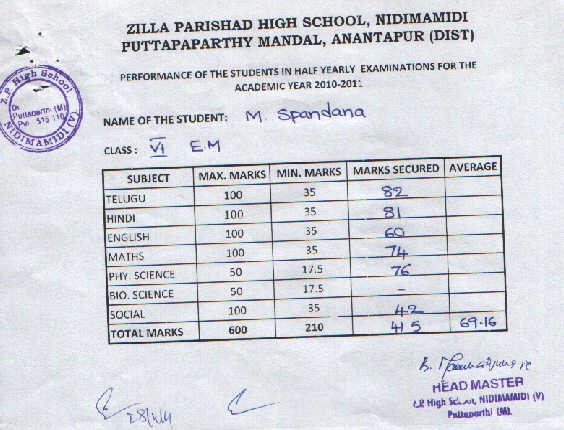 ZILLA PARISHAD HIGH SCHOOL, NIDIMAMIDI
PUTTAPAPARTHY MANDAL, ANANTAPUR (DIST)
PERFORMANCE OF THE STUDENTS IN HALF YEARLY EXAMINATIONS FOR THE
ACADEMIC YEAR 2010-2011
Z.P High School
Puttaparthi (M)
NIDIMAMIDI (V)
NAME OF THE STUDENT: M. Spandana
CLASS: VI EM
SUBJECT MAX. MARKS MIN. MARKS MARKS SECURED AVERAGE
TELUGU 100 35 82
HINDI 100 35 81
ENGLISH 100 35 60
MATHS 100 35 74
PHY. SCIENCE 50 17.5 76
BIO. SCIENCE 50 17.5 –
SOCIAL 100 35 42
TOTAL MARKS 600 210 415 69-16
HEAD MASTER
Z.P High School, NIDIMAMIDI (V)
Puttaparthi (M).